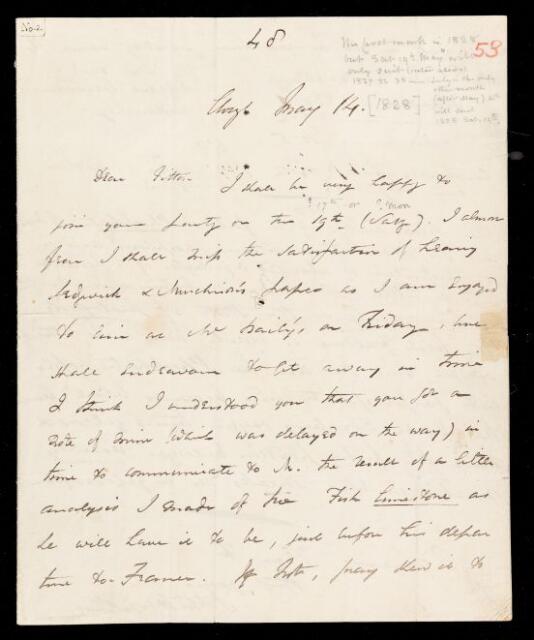 No 2
48
53
The post mark is 1828
but Sat. 19th May will
only suit
1827 32 38 July is the only
other month
(after May)
will suit
1828 Sat. 19th
May 14. [1828]
Dear Fitton I shall be very happy to
? 17th or ? Mon
join your party on the 19th (Saty). I almost
fear I shall miss the satisfaction of hearing
Sedgwick & Murchison's paper as I am engaged
to dine at Mr Baily's on Friday, but
shall endeavour to get away in time
I think I understood you that you got a
note of mine (which was delayed on the way) in
time to communicate to M. the result of a little
analysis I made of the Fish limestone as
he will have it to be, just before his depar
ture to France. If not, pray shew it to